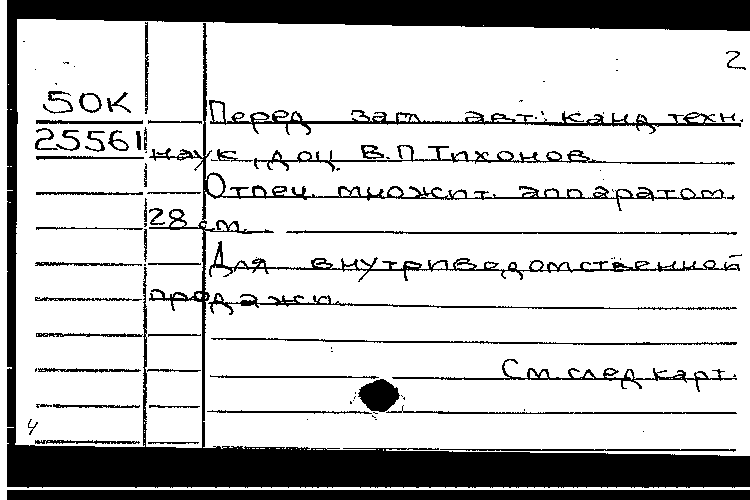 2
50К
Перед заг. авт.: канд. техн.
25561
наук, доц. В.П. Тихонов
Отпеч. множит. аппаратом.
28 см.
Для внутриведомственной
продажи.
См. след. карт.
4